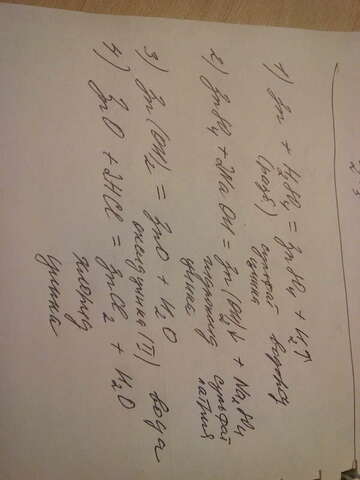 1) Zn + H2SO4 = ZnSO4 + H2↑
(разб) сульфат водород
цинка
2) ZnSO4 + 2NaOH = Zn(OH)2↓ + Na2SO4
гидроксид сульфат
цинка натрия
3) Zn(OH)2 = ZnO + H2O
оксид цинка (II) вода
4) ZnO + 2HCl = ZnCl2 + H2O
хлорид
цинка